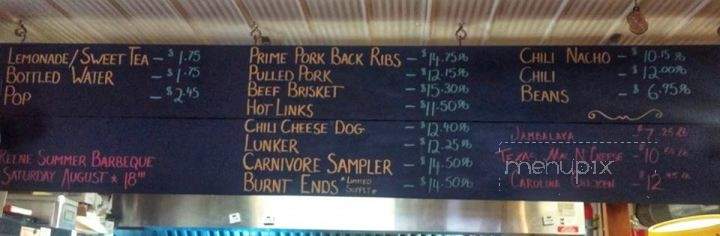 LEMONADE/SWEET TEA - $1.75
BOTTLED WATER - $1.75
POP - $2.45
PRIME PORK BACK RIBS - $14.75
PULLED PORK - $12.15
BEEF BRISKET - $15.30
HOT LINKS - $11.50
CHILI CHEESE DOG - $12.40
LUNKER - $12.25
CARNIVORE SAMPLER - $14.50
BURNT ENDS *LIMITED SUPPLY* - $14.50
CHILI NACHO - $10.15
CHILI - $12.00
BEANS - $6.95
JAMBALAYA - $7.25
TEXAS MAC N CHEESE - 10
CAROLINA CHICKEN - 12
SUMMER BARBEQUE
SATURDAY AUGUST * 18TH
menupix